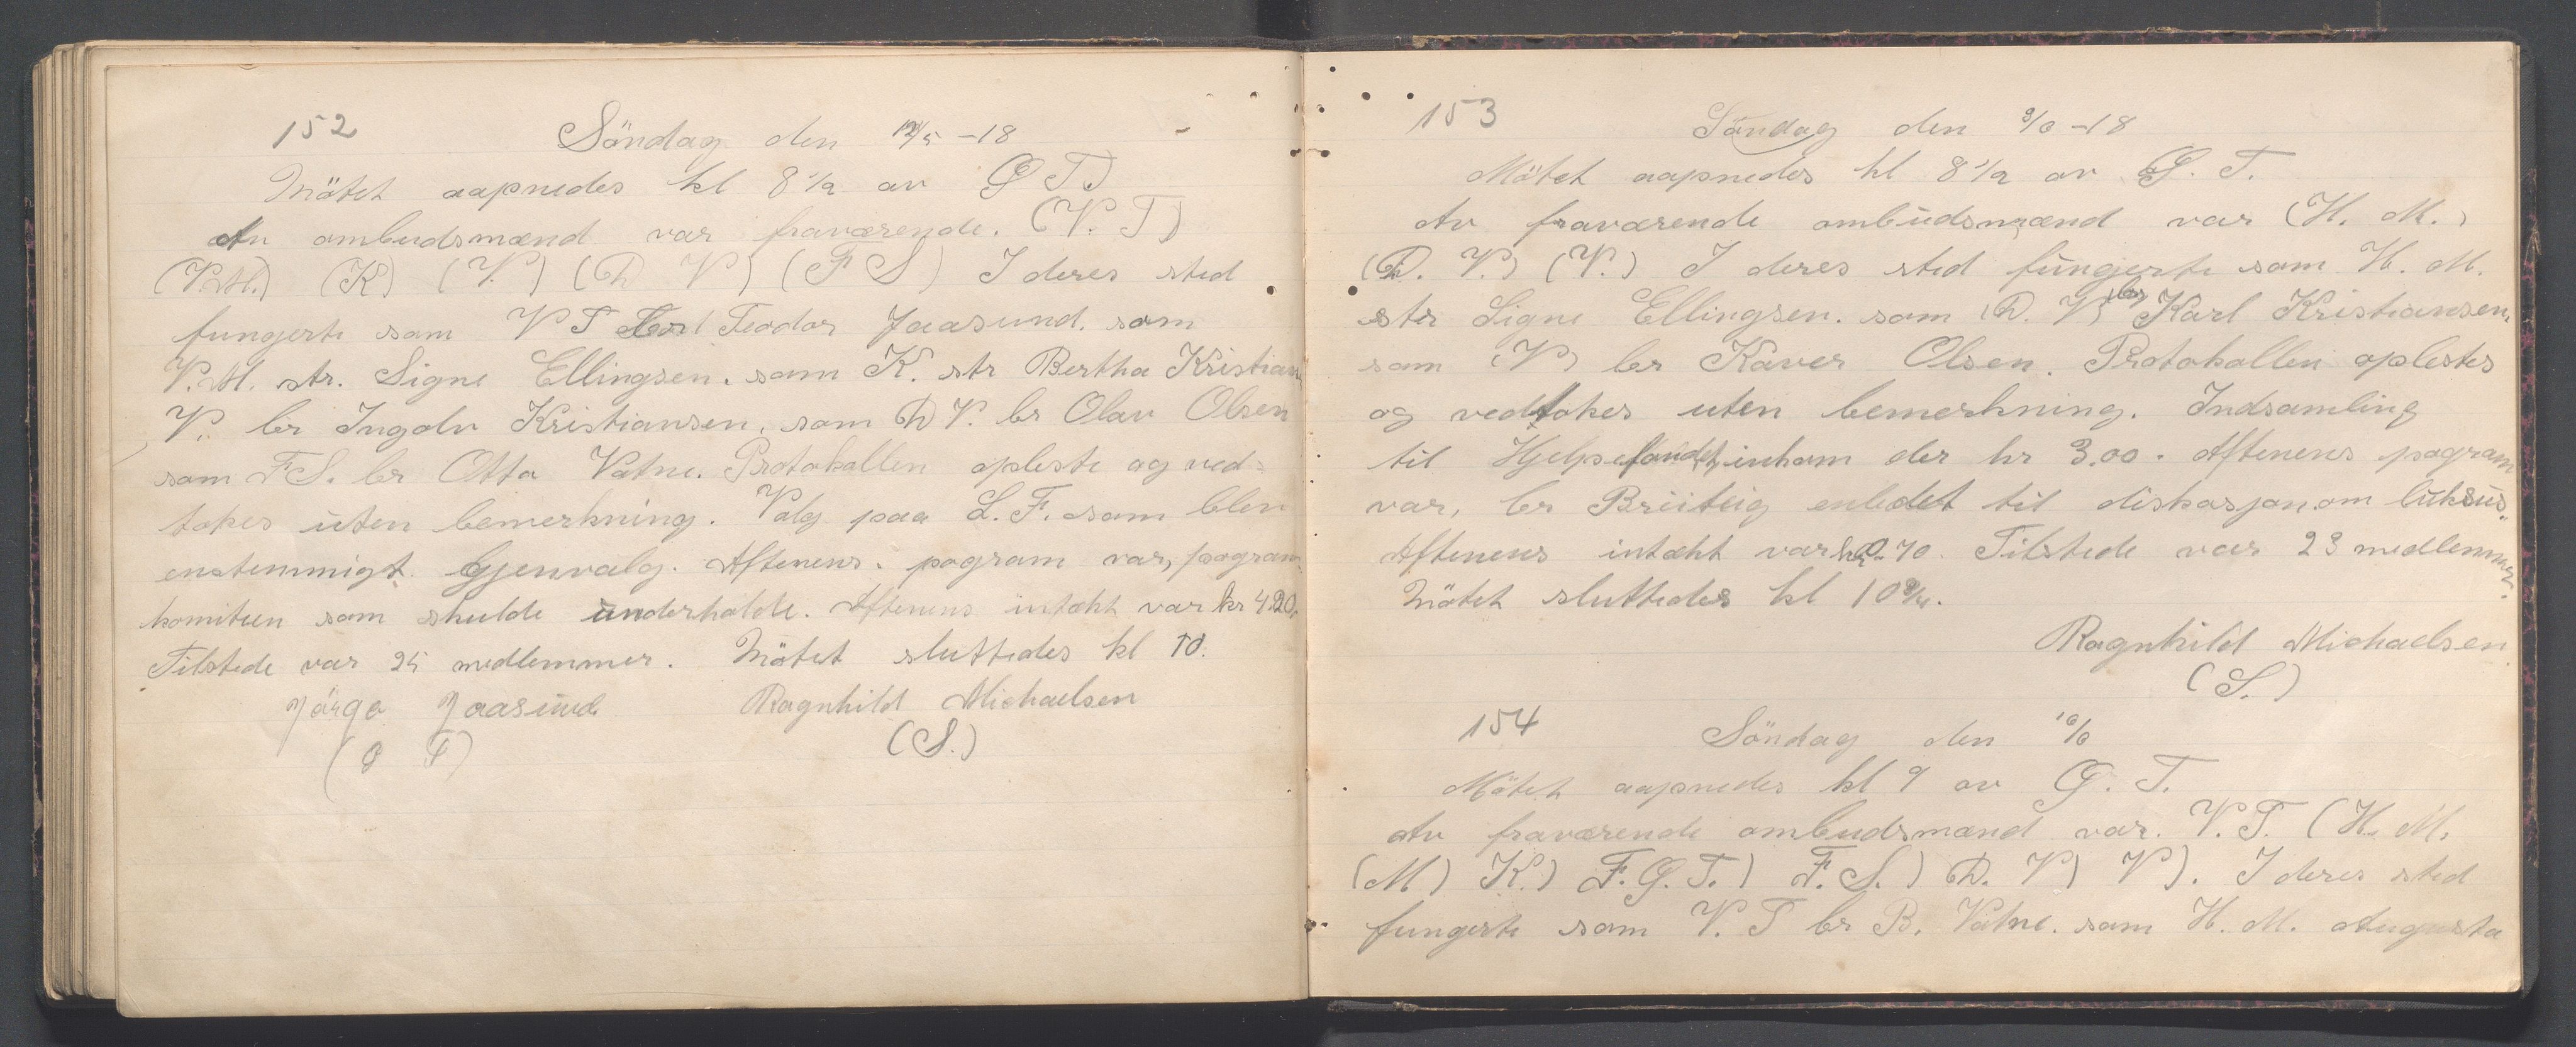 152 Söndag den 12/5 -18
Mötet aapnedes kl 8 1/2 av G T)
Av ombudsmænd var fraværende. (V. T)
(V.M.) (K) (V.) (D V) (F S) I deres sted
fungerte som V T Teodor Jaasund. som
V.M. str. Signe Ellingsen. som K. str Bertha Kristian
V. br Ingolv Kristiansen, som D V. br Olav Olsen
som F S. br Otto Vatne. Protokollen opleste og ved-
tokes uten bemerkning. Valg paa L. F. som blev
enstemmigt. Gjenvalg. Aftenens. pogram var, pogram
komiteen som skulde underholde. Aftenens intækt var kr 4.20.
Tilstede var 25 medlemmer. Mötet sluttedes kl 10.
Jörgo Jaasund Ragnhild Michaelsen
(G T) (S.)
153 Söndag den 9/6 -18
Mötet aapnedes kl 8 1/2 av G. T.
Av fraværende ombudsmænd var (H. M.)
(D. V.) (V.) I deres sted fungerte som H. M.
str Signe Ellingsen. som (D. V) br Karl Kristiansen,
som (V) br Kaver Olsen. Protokollen oplestes
og vedtokes uten bemerkning. Indsamling
til Hjelpefondet, inkom der kr 3.00. Aftenens pogram
var, br Breiteig enledet til diskasjon om luksus.
Aftenens intækt var kr 0.70. Tilstede var 23 medlemmer.
Mötet sluttedes kl 10 3/4.
Ragnhild Michaelsen
(S.)
154 Söndag den 16/6
Mötet aapnedes kl 9 av G. T.
Av fraværende ombudsmænd var. V. T. (H. M.
(M) K.) F. G. T.) F. S.) D. V) V). I deres sted
fungerte som V. T br B. Vatne. som H. M. Augusta